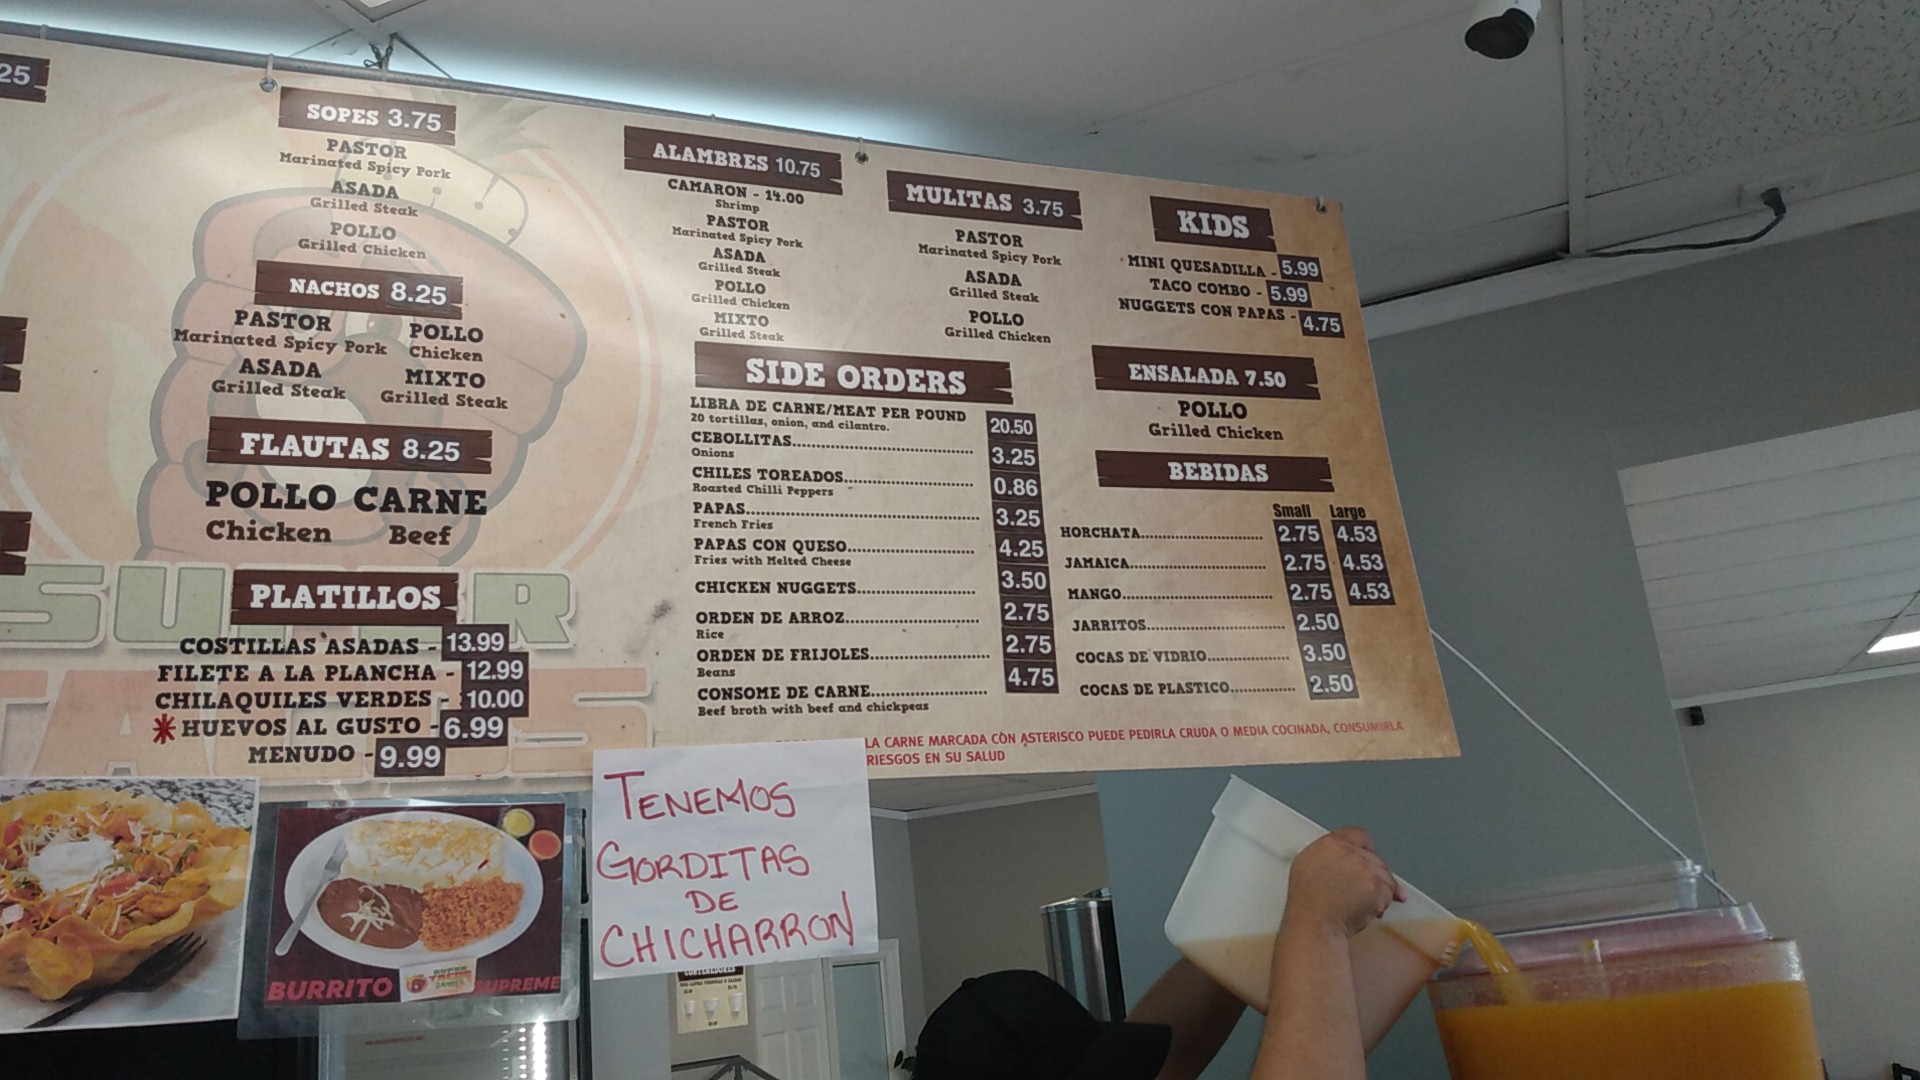 25
SOPES 3.75
PASTOR
Marinated Spicy Pork
ASADA
Grilled Steak
POLLO
Grilled Chicken
NACHOS 8.25
PASTOR
Marinated Spicy Pork
POLLO
Chicken
ASADA
Grilled Steak
MIXTO
Grilled Steak
FLAUTAS 8.25
POLLO CARNE
Chicken Beef
PLATILLOS
COSTILLAS ASADAS - 13.99
FILETE A LA PLANCHA - 12.99
CHILAQUILES VERDES - 10.00
*HUEVOS AL GUSTO - 6.99
MENUDO - 9.99
SUPER
TACOS
ALAMBRES 10.75
CAMARON - 14.00
Shrimp
PASTOR
Marinated Spicy Pork
ASADA
Grilled Steak
POLLO
Grilled Chicken
MIXTO
Grilled Steak
MULITAS 3.75
PASTOR
Marinated Spicy Pork
ASADA
Grilled Steak
POLLO
Grilled Chicken
SIDE ORDERS
LIBRA DE CARNE/MEAT PER POUND 20.50
20 tortillas, onion, and cilantro.
CEBOLLITAS 3.25
Onions
CHILES TOREADOS 0.86
Roasted Chilli Peppers
PAPAS 3.25
French Fries
PAPAS CON QUESO 4.25
Fries with Melted Cheese
CHICKEN NUGGETS 3.50
ORDEN DE ARROZ 2.75
Rice
ORDEN DE FRIJOLES 2.75
Beans
CONSOME DE CARNE 4.75
Beef broth with beef and chickpeas
KIDS
MINI QUESADILLA - 5.99
TACO COMBO - 5.99
NUGGETS CON PAPAS - 4.75
ENSALADA 7.50
POLLO
Grilled Chicken
BEBIDAS
Small Large
HORCHATA 2.75 4.53
JAMAICA 2.75 4.53
MANGO 2.75 4.53
JARRITOS 2.50
COCAS DE VIDRIO 3.50
COCAS DE PLASTICO 2.50
LA CARNE MARCADA CON ASTERISCO PUEDE PEDIRLA CRUDA O MEDIA COCINADA, CONSUMIRLA
RIESGOS EN SU SALUD
BURRITO SUPREME
SUPER
TACOS
TENEMOS
GORDITAS
DE
CHICHARRON